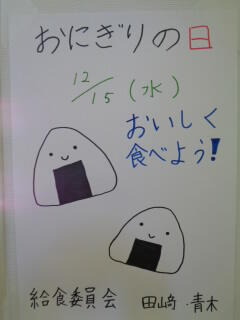 おにぎりの日
12/15(水)
おいしく
食べよう!
給食委員会 田﨑・青木